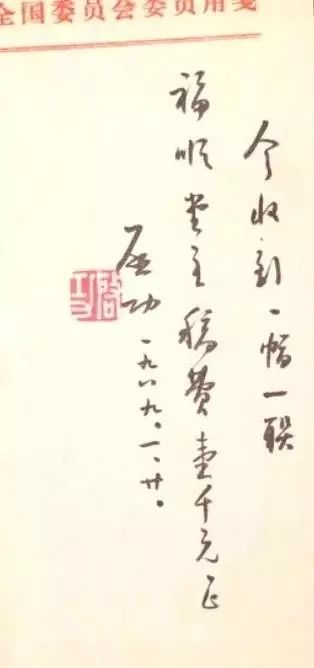 全国委员会委员用笺
今收到一幅一联
福顺堂主稿费壹千元正
启功 一九八九.一.廿.
启功